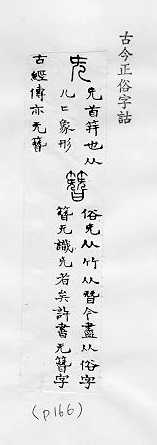 古今正俗字詁
兂
首筓也从
儿匕象形
簪
俗兂从竹从朁今盡从俗字
簪无識兂者矣許書无簪字
古經傳亦无簪
(p166)